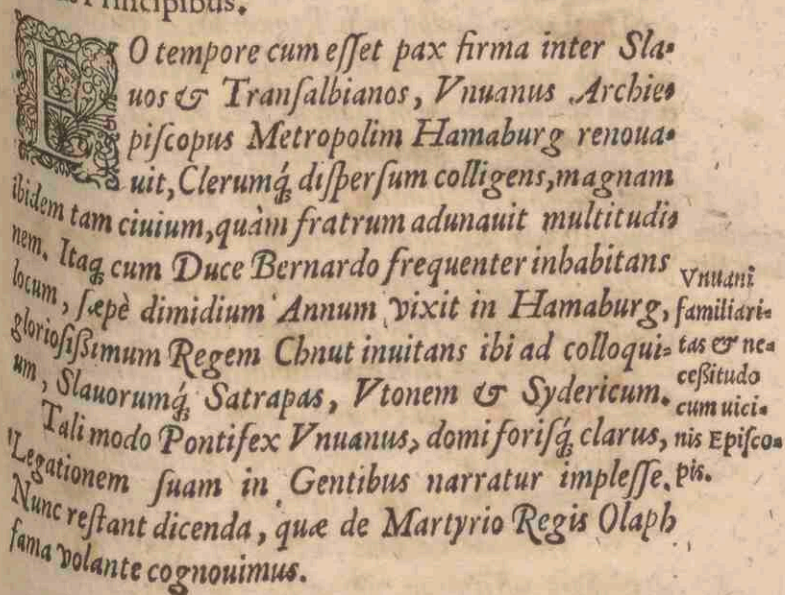 Principibus.
EO tempore cum eſſet pax firma inter Sla-
uos & Tranſalbianos, Vnuanus Archie-
piſcopus Metropolim Hamaburg renoua-
uit, Clerumq́; diſperſum colligens, magnam
ibidem tam ciuium, quàm fratrum adunauit multitudi-
nem. Itaq; cum Duce Bernardo frequenter inhabitans
locum, ſæpè dimidium Annum vixit in Hamaburg,
glorioſiſsimum Regem Chnut inuitans ibi ad colloqui-
um, Slauorumq́; Satrapas, Vtonem & Sydericum.
Tali modo Pontifex Vnuanus, domi foriſq́; clarus,
Legationem ſuam in Gentibus narratur impleſſe.
Nunc reſtant dicenda, quæ de Martyrio Regis Olaph
fama volante cognouimus.
Vnuani
familiari-
tas & ne-
ceſsitudo
cum uici-
nis Epiſco-
pis.